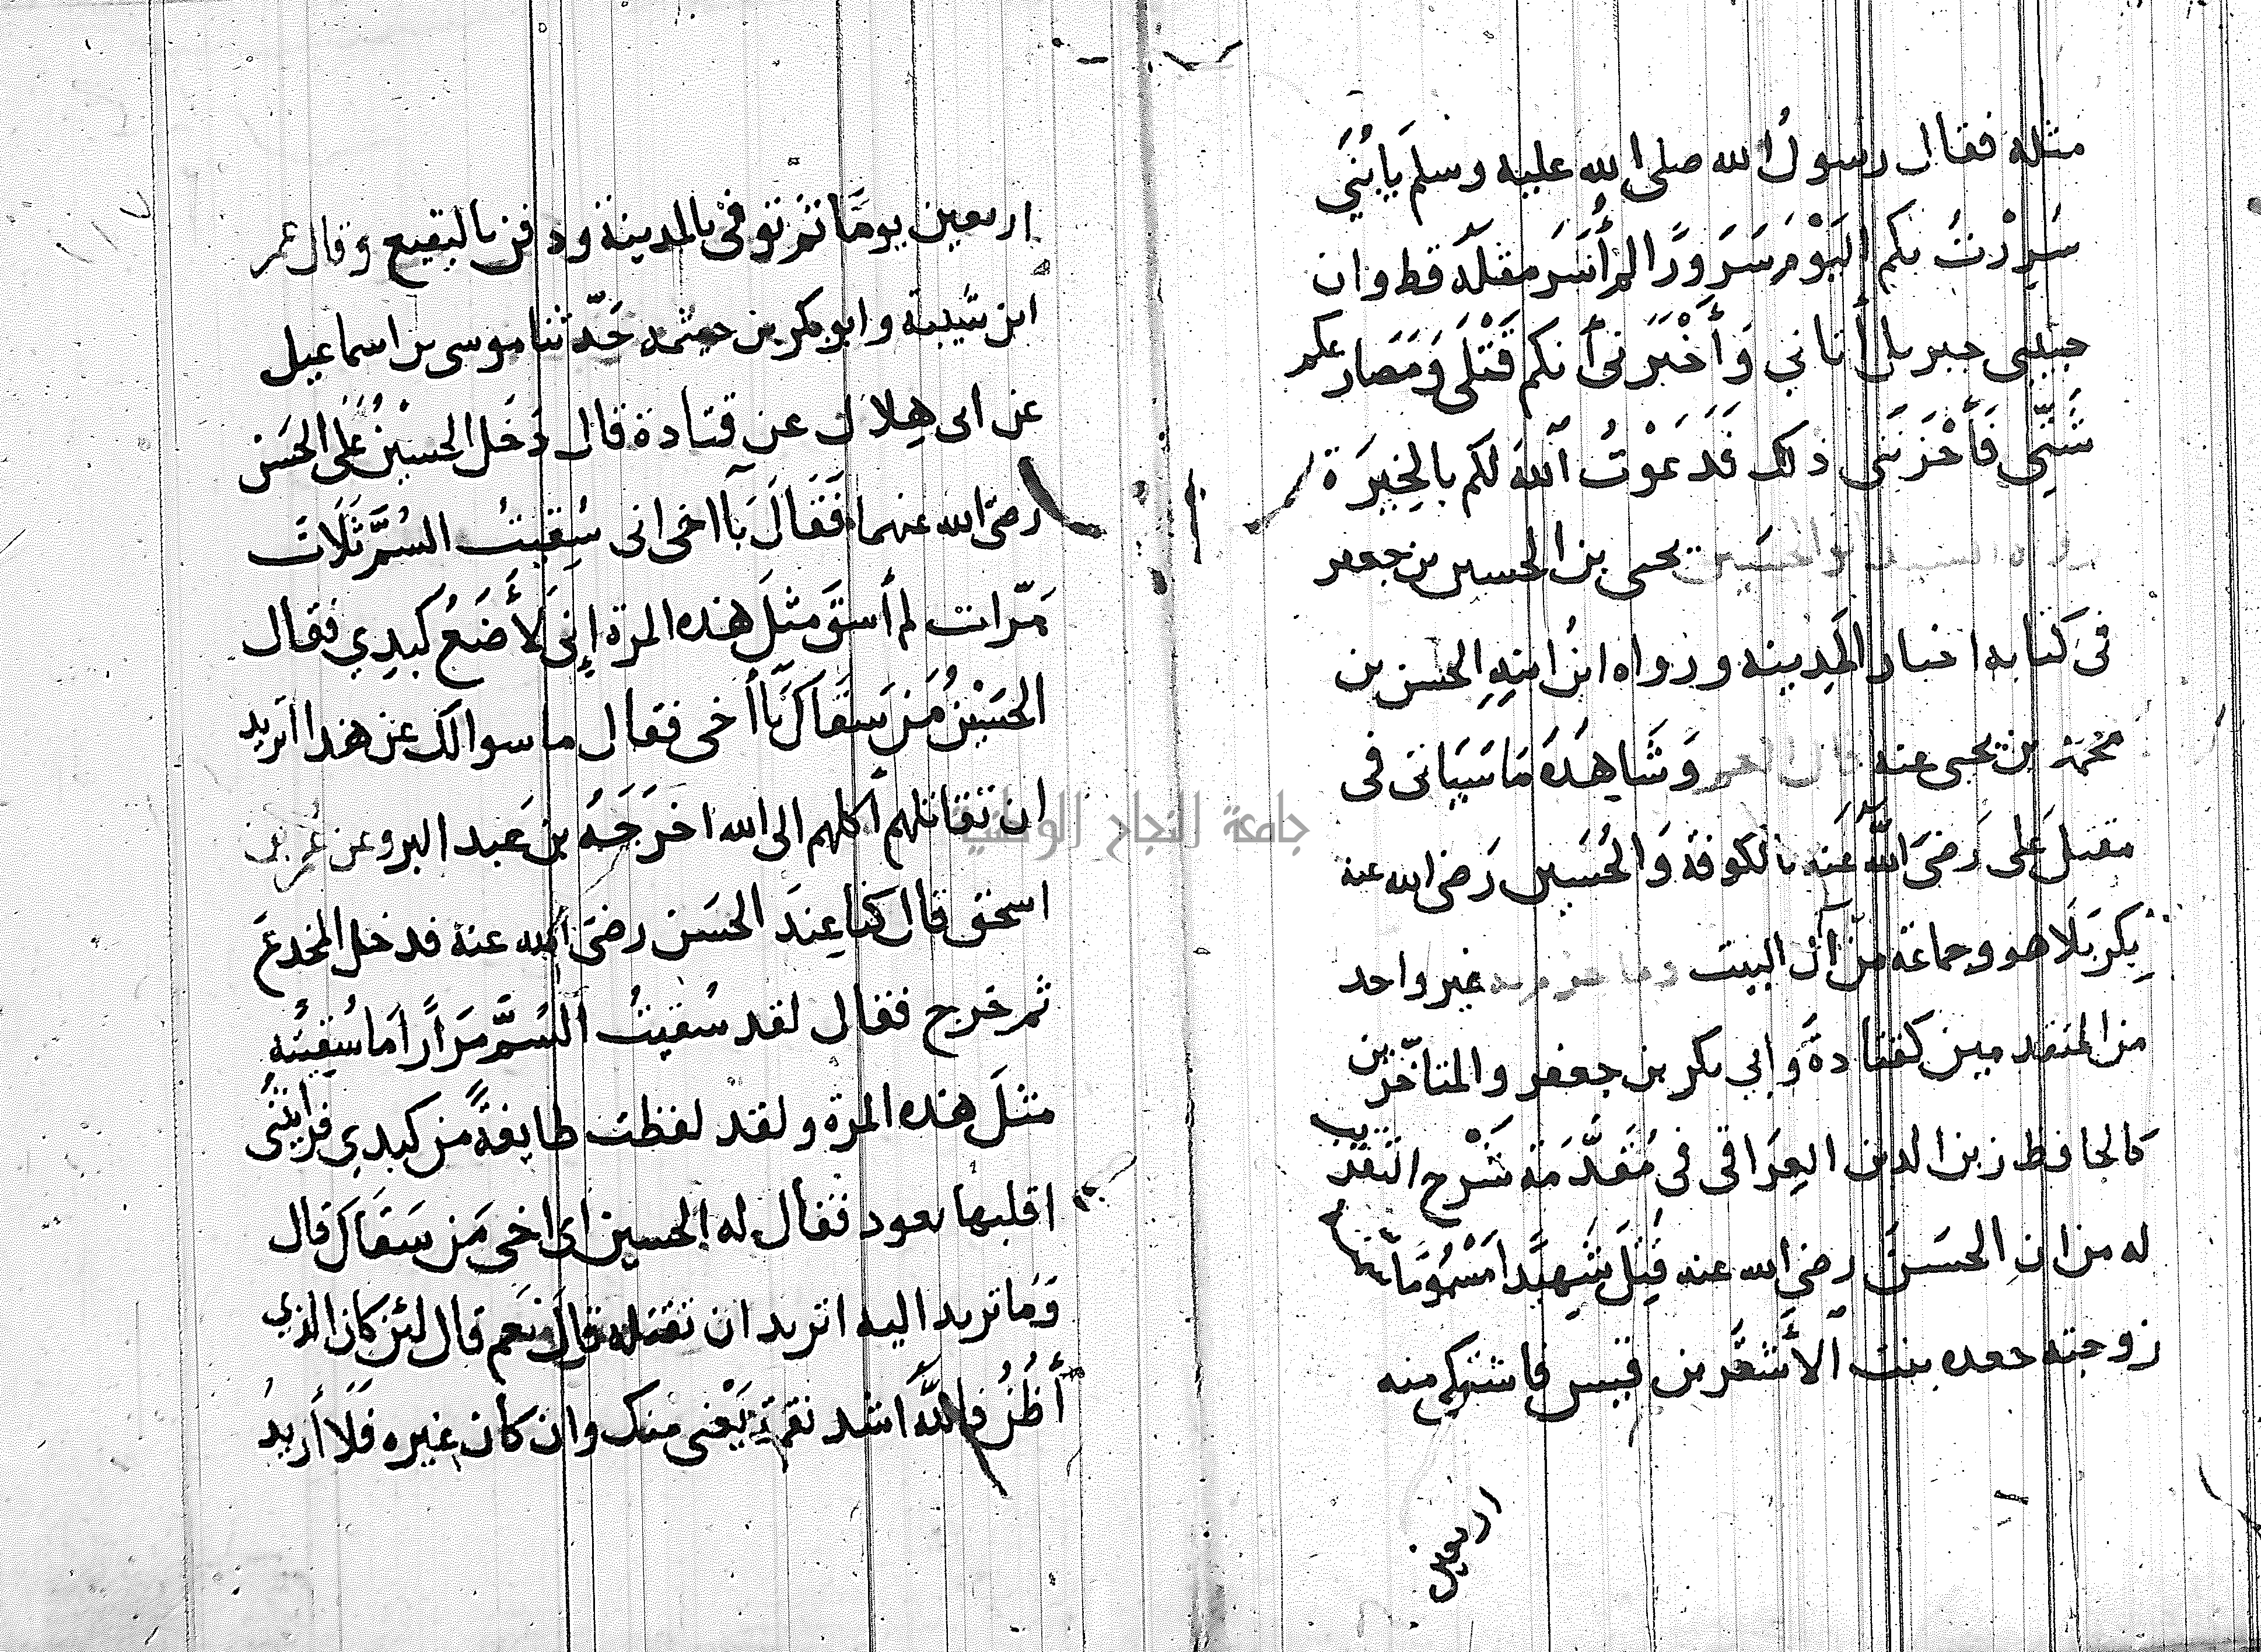 مثله فقال رسولُ الله صلى الله عليه وسلم يابُنيَّ
سُرِرْتُ بكم اليَوْمَ سَرَورًا لم أُسَرَ مثله قط وان
حبيبى جبريل أتاني وَأَخْبَرَنى أنكم قَتْلَى وَمَصارعكم
شَتّى فَأَحْزَنَنى ذلك فَدَعَوْتُ اللهَ لكم بالخِيَرَة
رواه السيد ابو الحُسَين يحيى بن الحسين بن جعفر
فى كتابه اخبار المَدِينه ورواه ابن ابنِهِ الحسن بن
محمد بن يحيى عنه وَشَاهِدُهُ مَا سَيَاتى فى
مقتل عَلى رَضىَ اللهُ عَنه بالكوفة وَالحُسَين رَضى الله عنه
بِكربَلَا هو وجماعَة مِنْ آل البيت غير واحد
من المتقدمين كقتادةَ وَابي بكر بن جعفر والمتأخّرين
كالحافظ زين الدين العِرَاقى فى مُقَدَّمَة شَرْح التقريب
له من ان الحسَن رضى الله عنه قُتِلَ شَهِيدًا مَسْمُومًا
زوجته جعده بنت الأَشعَث بن قيس فاشتكى منه
اربعين
اربعين يومًا ثم توفى بالمدينة ودفن بالبقيع وقال عمر
ابن شيبة وابو بكر بن حيثمه حَدّثنا موسى بن اسماعيل
عن ابى هِلال عن قتادة قال دَخَل الحسينُ عَلى الحَسَن
رضى الله عنهما فَقَالَ يَا اخى انى سُقيتُ السُمَّ ثَلَاثَ
مَرّات لم أُسْقَ مثلَ هَذه المرة إِنى لَأَضَعُ كبدِي فقال
الحُسَيْنُ مَن سَقَاكَ يَا أَخى فقال ما سوالك عن هَذا اتريد
ان تقاتلهم أكلهم الى الله اخرَجَهُ بن عَبد البر وعن عُمر بن
اسحق قال كنا عِندَ الحسَن رضىَ الله عنه فدخل المخدعَ
ثم خرج فقال لقد سُقيتُ السُمَّ مِرَارًا مَا سُقِيتُه
مثلَ هذه المرة ولقد لفظت طايفةً من كبدي فرايتنى
اقلبها بعود فقال له الحسين اى اخى مَن سَقَاك قال
وَمَا تريد اليه اتريد ان تقتله قال نعم قال لئن كان الذي
أَظُنُّ فاللهُ اشد نقمة يَعْنى منك وان كان غيره فَلَا أُريدُ
جامعة النجاح الوطنية